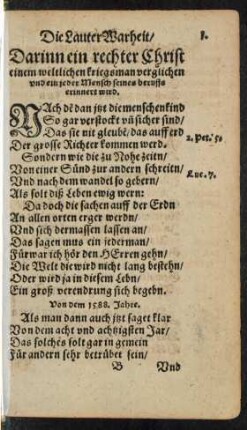 Die Lauter Warheit/
1.
Darinn ein rechter Christ
einem weltlichen kriegsman verglichen
vnd ein jeder Mensch seines beruffs
erinnert wird.
NAch dē dan jtzt die menschenkind
So gar verstockt vn̄ sicher sind/
Das sie nit gleubē/ das auff erd
2. Pet. 3.
Der grosse Richter kommen werd.
Sondern wie die zu Nohe zeitn/
Von einer Sünd zur andern schreitn/
Luc. 7.
Vnd nach dem wandel so gebern/
Als solt diß Leben ewig wern:
Da doch die sachen auff der Erdn
An allen orten erger werdn/
Vnd sich dermassen lassen an/
Das sagen mus ein jederman/
Fürwar ich hör den HErren gehn/
Die Welt die wird nicht lang bestehn/
Oder wird ja in diesem Lebn/
Ein groß verendrung sich begebn.
Von dem 1588. Jahre.
Als man dann auch jtzt saget klar
Von dem acht vnd achtzigsten Jar/
Das solchēs solt gar in gemein
Für andern sehr betrübet sein/
B Vnd